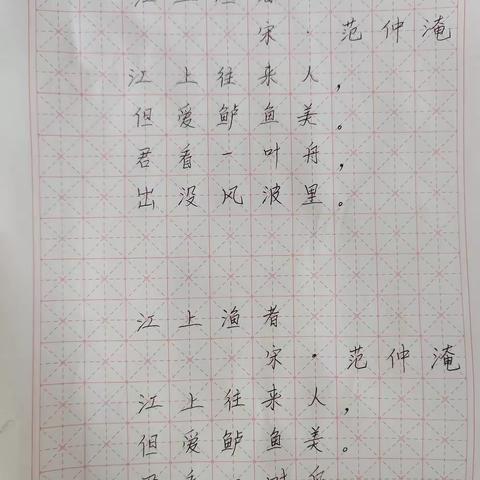 江上渔者
宋·范仲淹
江上往来人，
但爱鲈鱼美。
君看一叶舟，
出没风波里。
江上渔者
宋·范仲淹
江上往来人，
但爱鲈鱼美。
君看一叶舟